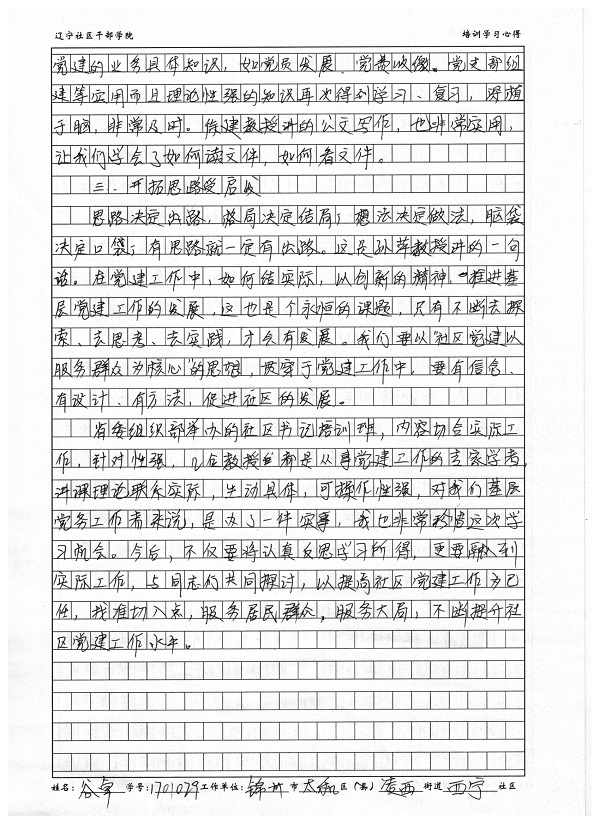 辽宁社区干部学院 培训学习心得
党建的业务具体知识，如党员发展、党费收缴。党支部组
建等实用而且理论性强的知识再次得到学习、复习，浮颜
于脑，非常及时。传建教授讲的公文写作，也非常实用，
让我们学会了如何读文件，如何看文件。
三、开拓思路受启发
思路决定出路，格局决定结局；想法决定做法，脑袋
决定口袋；有思路就一定有出路。这是孙萍教授讲的一句
话。在党建工作中，如何结实际，以创新的精神，推进基
层党建工作的发展，这也是个永恒的课题，只有不断去探
索、去思考、去实践，才会有发展。我们要以"社区党建以
服务群众为核心"的思想，贯穿于党建工作中，要有信念、
有设计、有方法，促进社区的发展。
省委组织部举办的社区书记培训班，内容切合实际工
作，针对性强，几位教授都是从事党建工作的专家学者，
讲课理论联系实际，生动具体，可操作性强，对我们基层
党务工作者来说，是办了一件实事，我也非常珍惜这次学
习机会。今后，不仅要将认真反思学习所得，更要融入到
实际工作，与同志们共同探讨，以提高社区党建工作为己
任，找准切入点，服务居民群众，服务大局，不断提升社
区党建工作水平。
姓名：谷卓 学号：1701029 工作单位：锦州 市 太和 区（县） 凌西 街道 西宁 社区